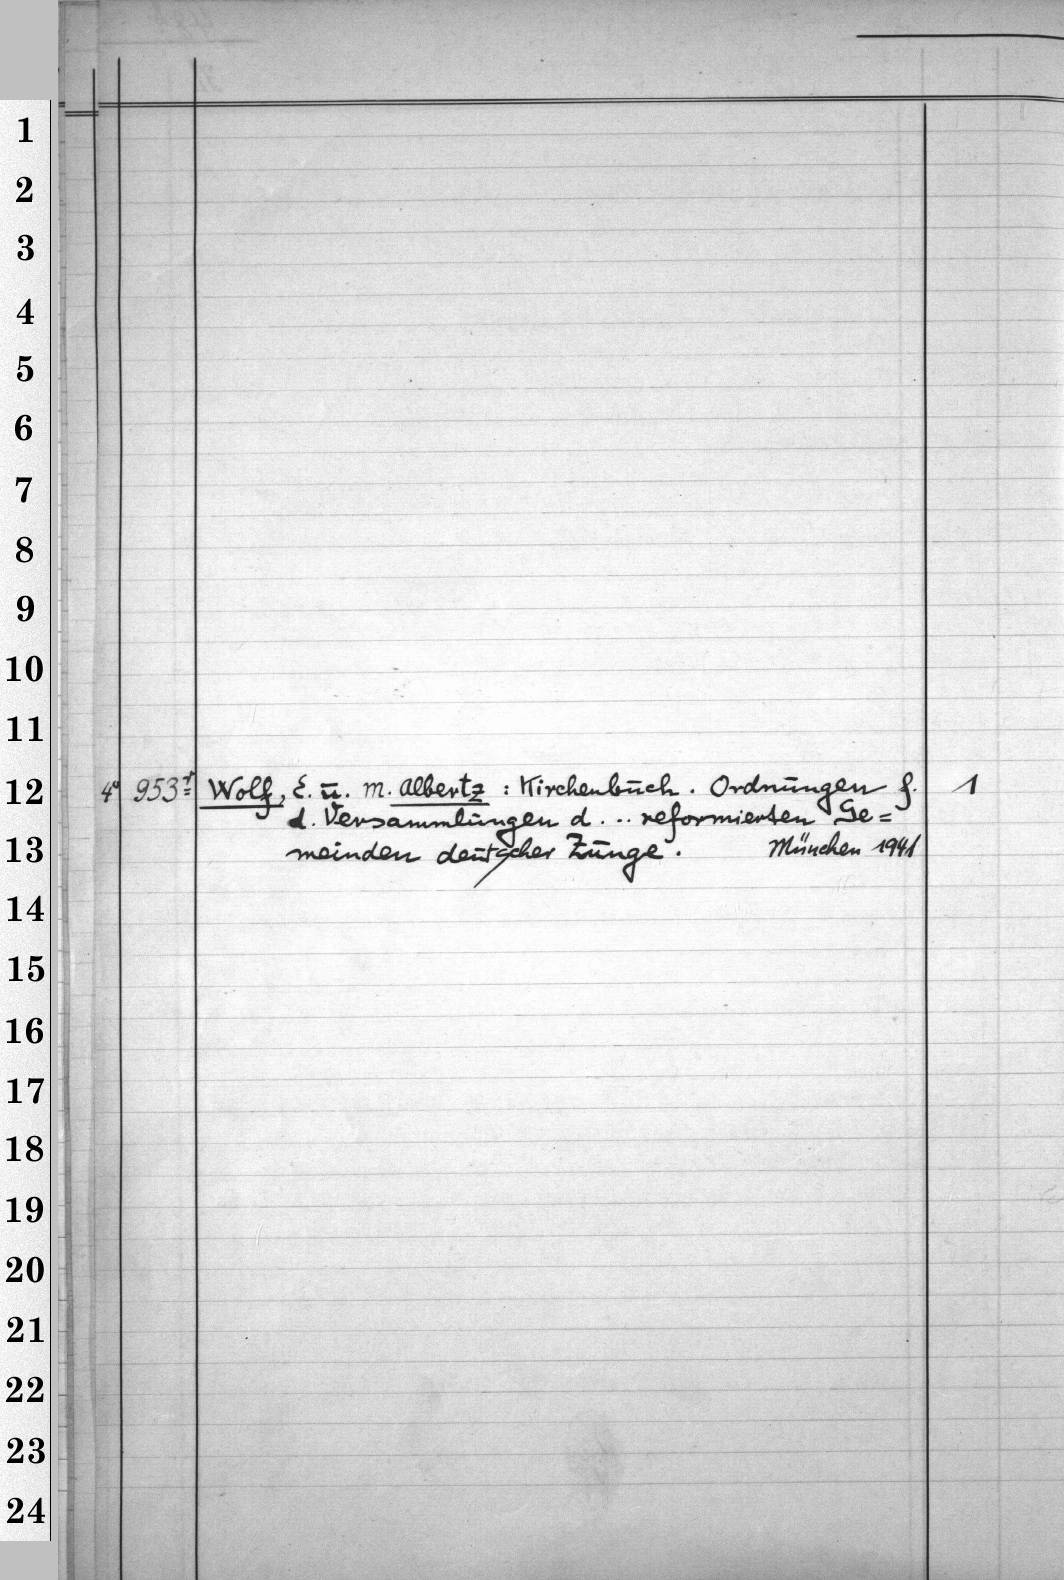 1
2
3
4
5
6
7
8
9
10
11
12
13
14
15
16
17
18
19
20
21
22
23
24
4° 953 Wolf, E. u. M. Albertz : Kirchenbuch. Ordnungen f. 1
d. Versammlungen d. .. reformierten Ge=
meinden deutscher Zunge. München 1941